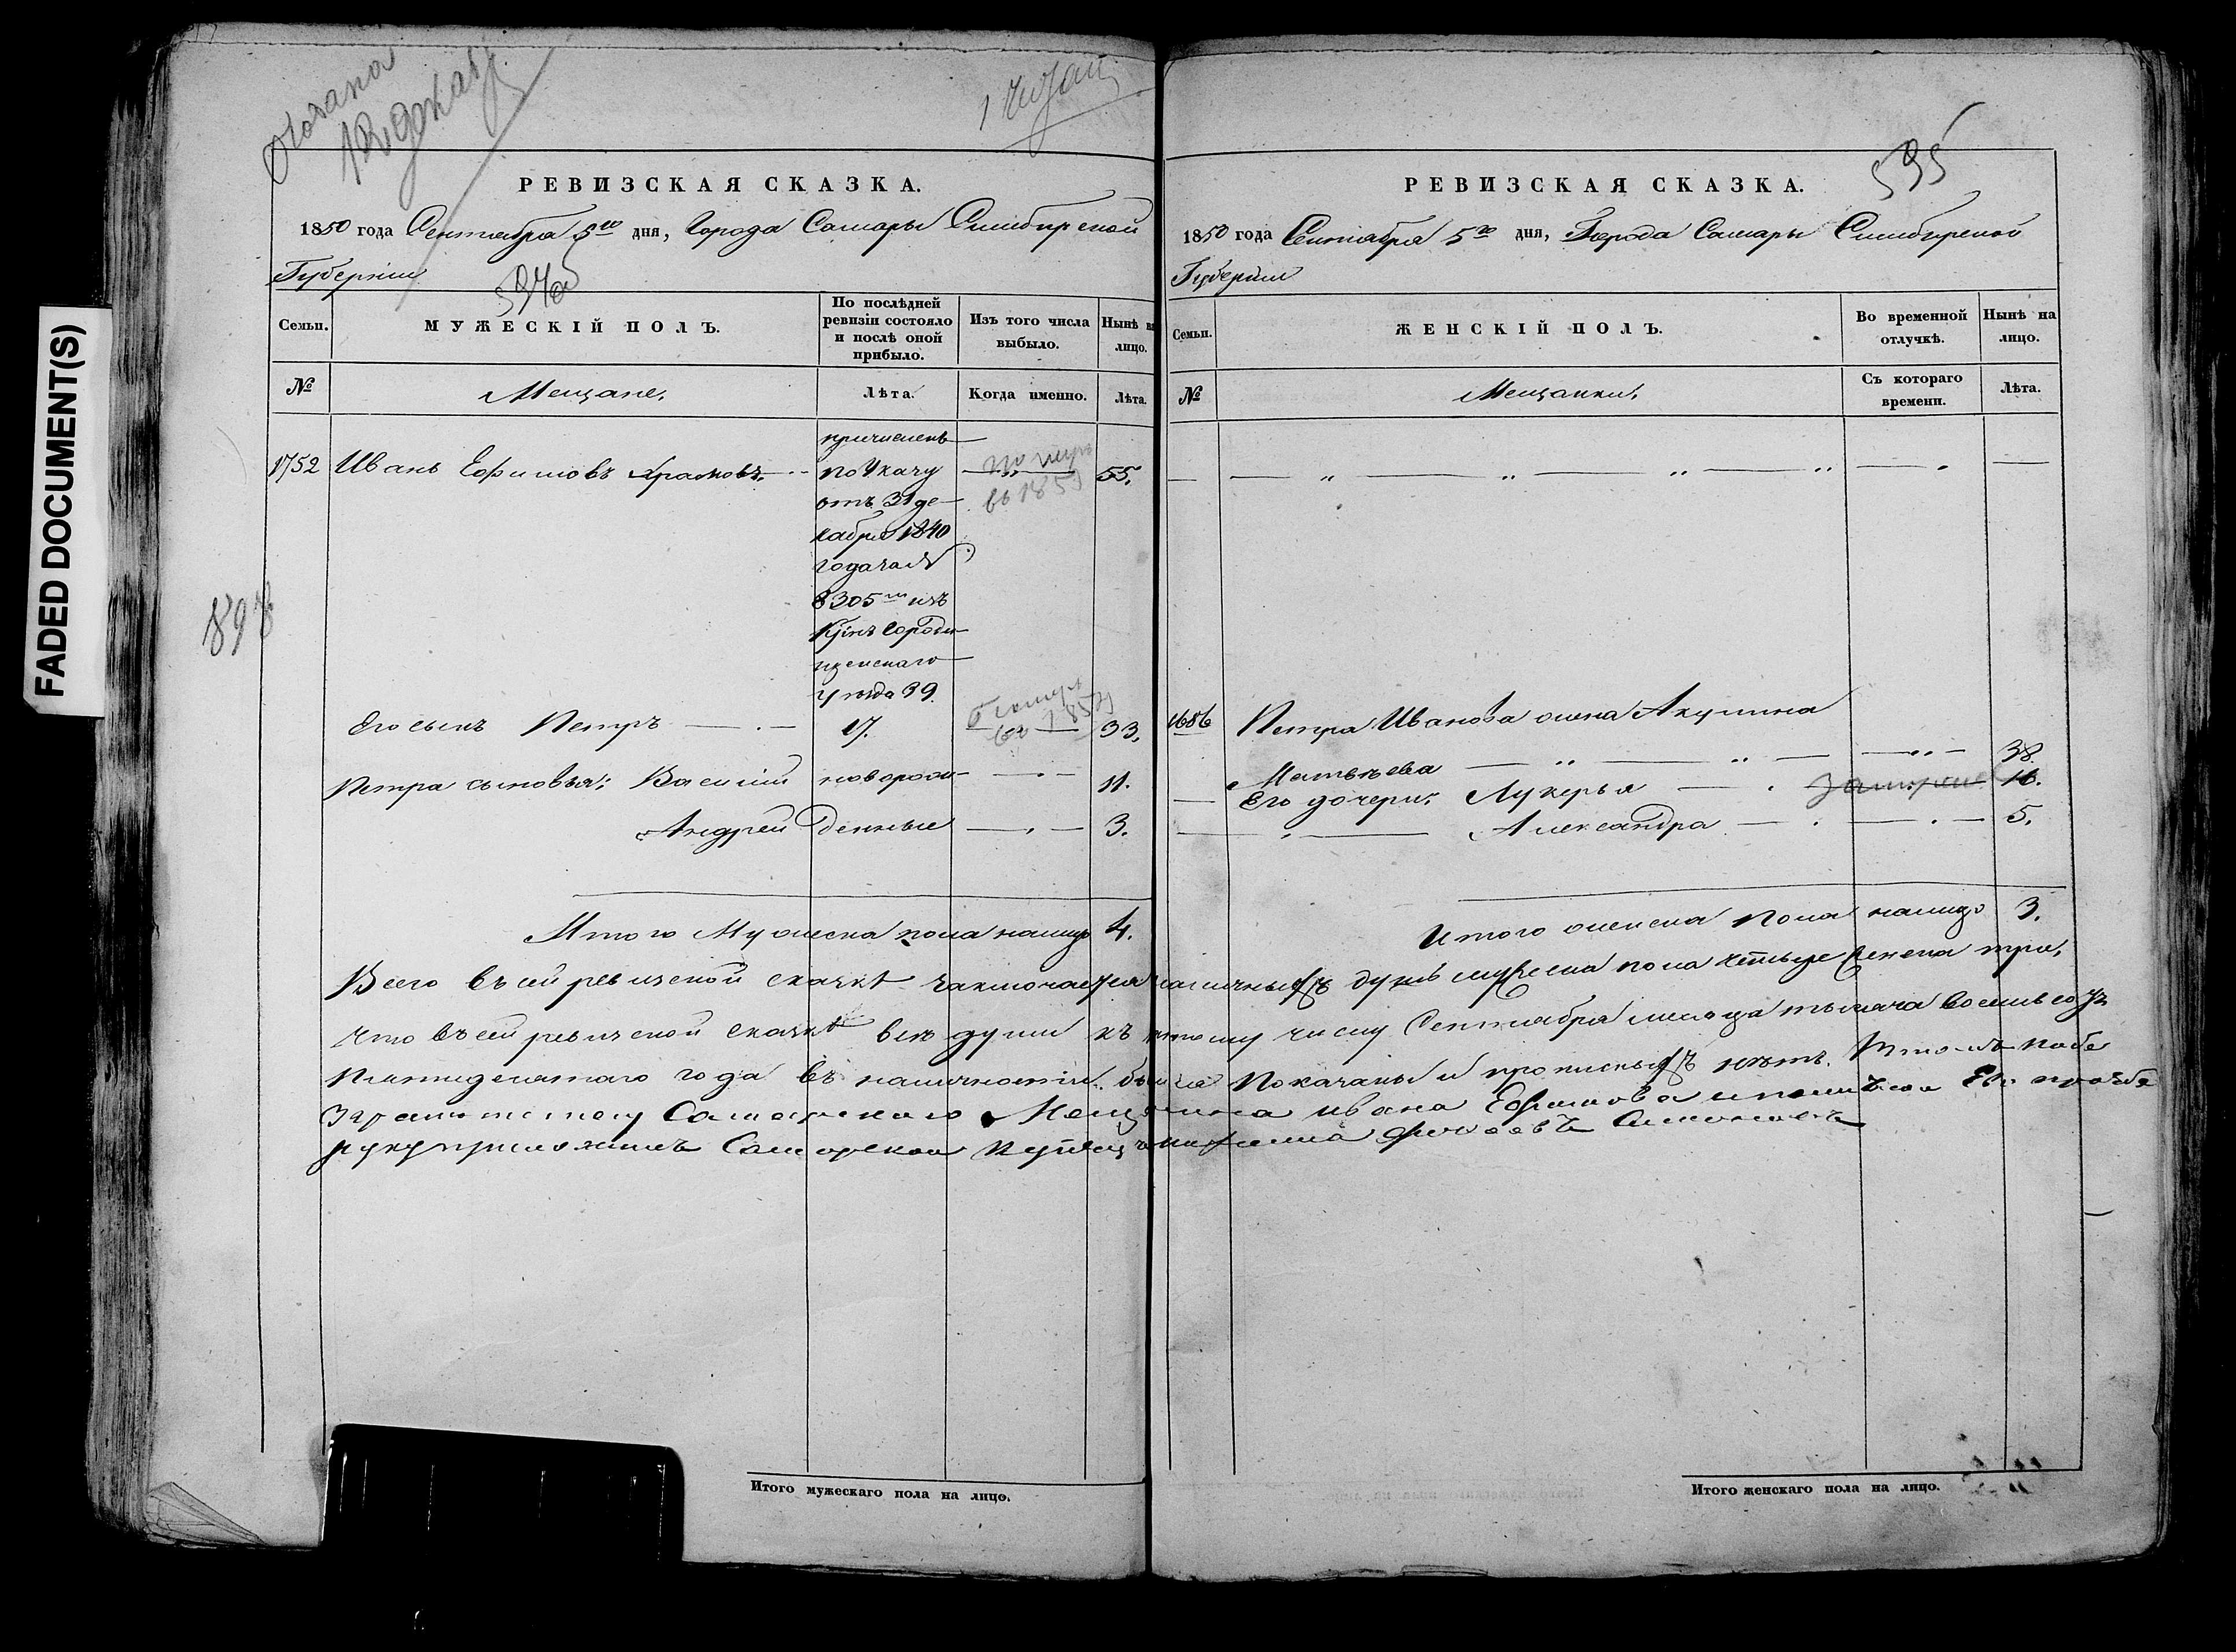 FADED DOCUMENT(S)
РЕВИЗСКАЯ СКАЗКА.
1850 года Сентября 5го дня, Города Самары Симбирской
Губернии
594об
Семьи.
МУЖЕСКІЙ ПОЛЪ.
По послѣдней ревизіи состояло и послѣ оной прибыло.
Изъ того числа выбыло.
Нынѣ на лицо.
№
Мещане.
Лѣта.
Когда именно.
Лѣта.
1752 Иванъ Ефимовъ Храмовъ.
причисленъ
по Указу
отъ 31 де-
кабря 1840
года за №
8305м изъ
уѣзда 39.
померъ
въ 1859
55.
898
Его сынъ Петръ 17. 33.
Петра сыновья: Василій новорож- 11.
Андрей денные 3.
Итого Мужеска пола налицо 4.
Итого мужескаго пола на лицо.
595
РЕВИЗСКАЯ СКАЗКА.
1850 года Сентября 5го дня, Города Самары Симбирской
Губернии
Семьи.
ЖЕНСКІЙ ПОЛЪ.
Во временной отлучкѣ.
Нынѣ на лицо.
№
Мещанки.
Съ котораго времени.
Лѣта.
1686 Петра Иванова жена Акулина
Матвѣева 38.
Его дочери: Лукерья замужем 16.
Александра 5.
Итого женска пола налицо 3.
Всего въ сей ревизской сказкѣ заключается наличныхъ душъ мужеска пола четыре женска три,
что въ сей ревизской сказкѣ всѣ души къ пятому числу Сентября месяца тысяча восемь сотъ
пятидесятаго года въ наличности были показаны и прописныхъ нѣтъ. В томъ
Самарскаго Мещанина Ивана Ефимова его прозбе
руку приложилъ Самарской
Итого женскаго пола на лицо.